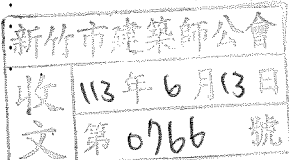 新竹市建築師公會
收文
113年6月13日
第0766號